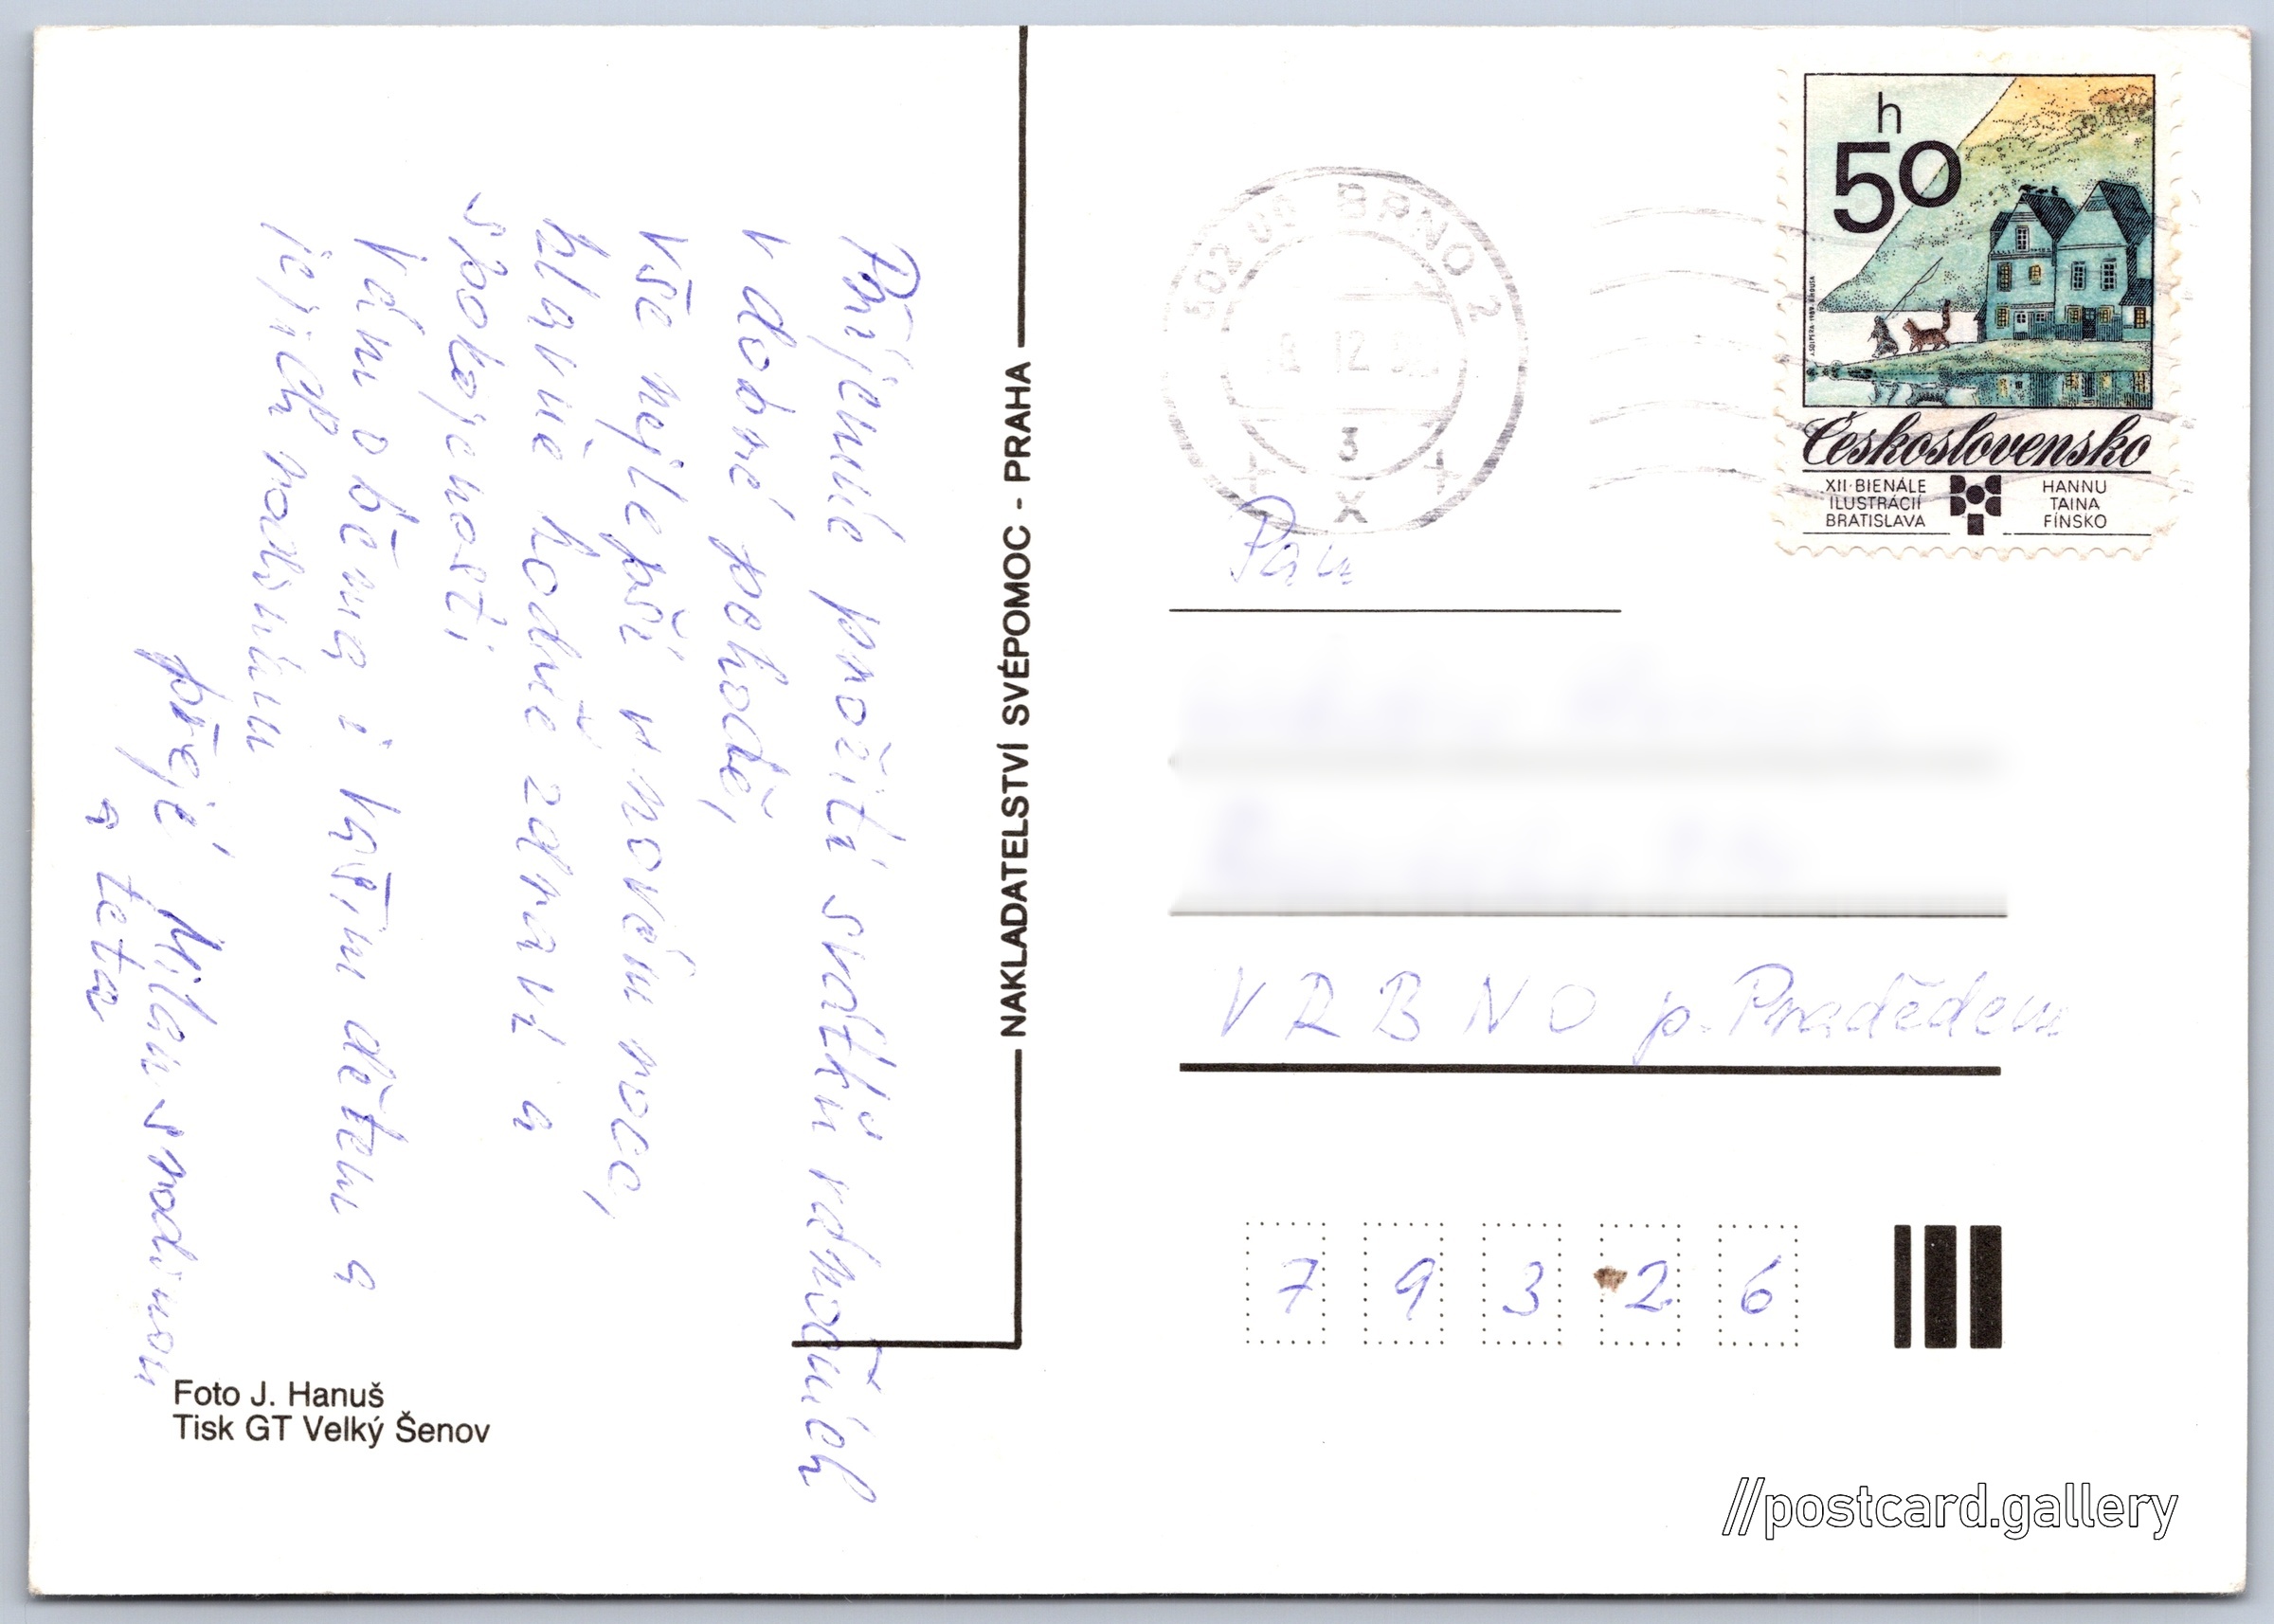 Příjemné prožití svátků vánočních
v dobré pohodě,
vše nejlepší v novém roce,
hlavně hodně zdraví a
spokojenosti
Vám oběma i Vašim dětem a
jejich rodinám
přejí Milan s rodinou
a teta
Foto J. Hanuš
Tisk GT Velký Šenov
NAKLADATELSTVÍ SVÉPOMOC - PRAHA
602 00 BRNO 2
12
3
x
h
50
Československo
XII·BIENÁLE
ILUSTRÁCIÍ
BRATISLAVA
HANNU
TAINA
FÍNSKO
Pan
VRBNO p. Pradědem
7 9 3 2 6
//postcard.gallery